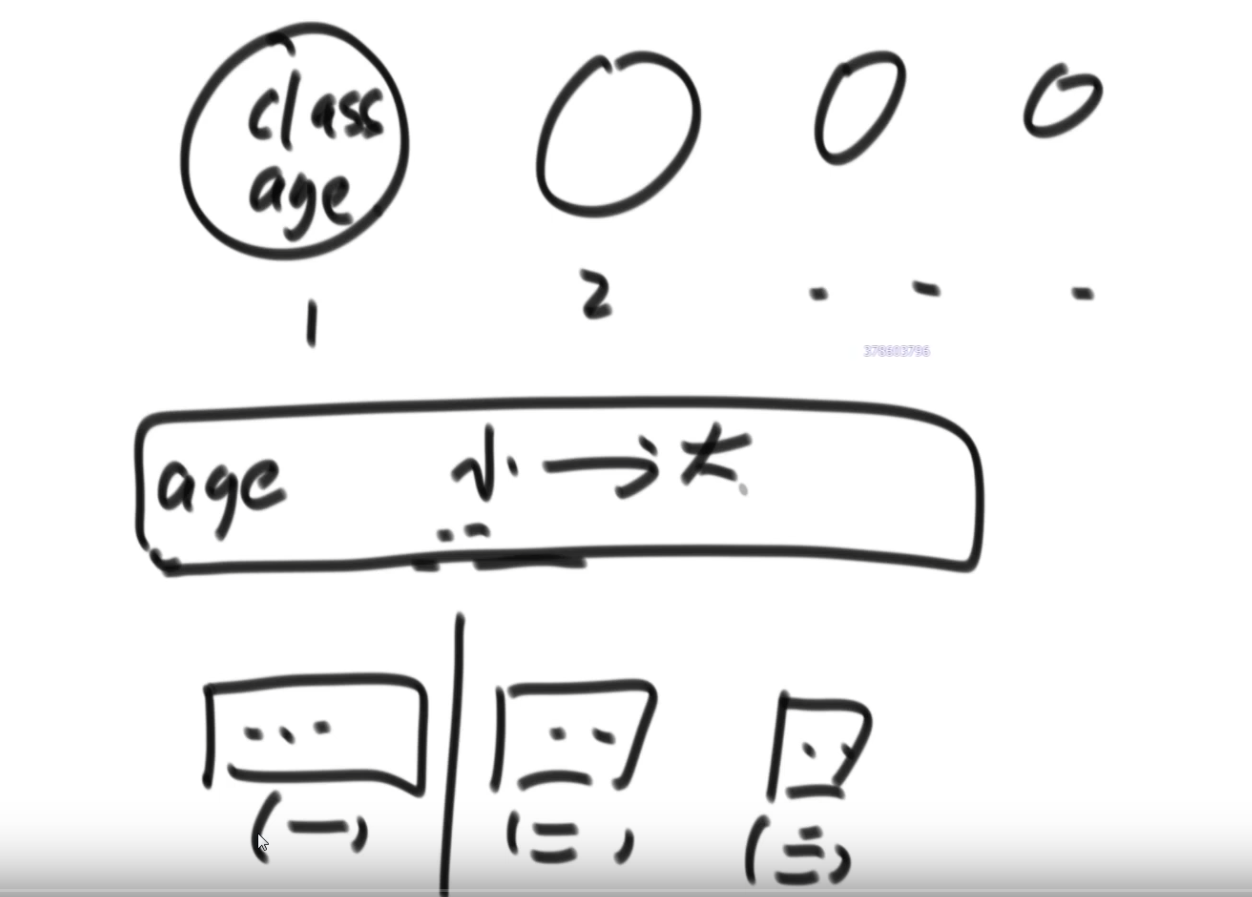 class
age
1
2
378603796
age 小 → 大
(一)
(二)
(三)